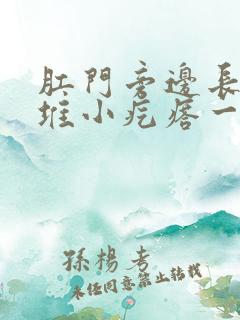 肛門旁邊長
堆小疙瘩一
孫楊考
未经同意禁止转载